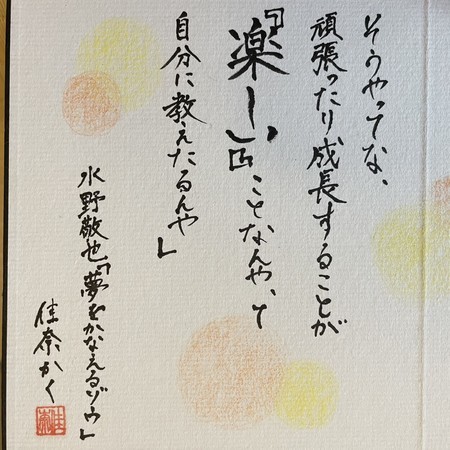 そうやってな、
頑張ったり成長することが
『楽しい』ことなんや、て
自分に教えたるんや」
水野敬也『夢をかなえるゾウ』
佳奈かく